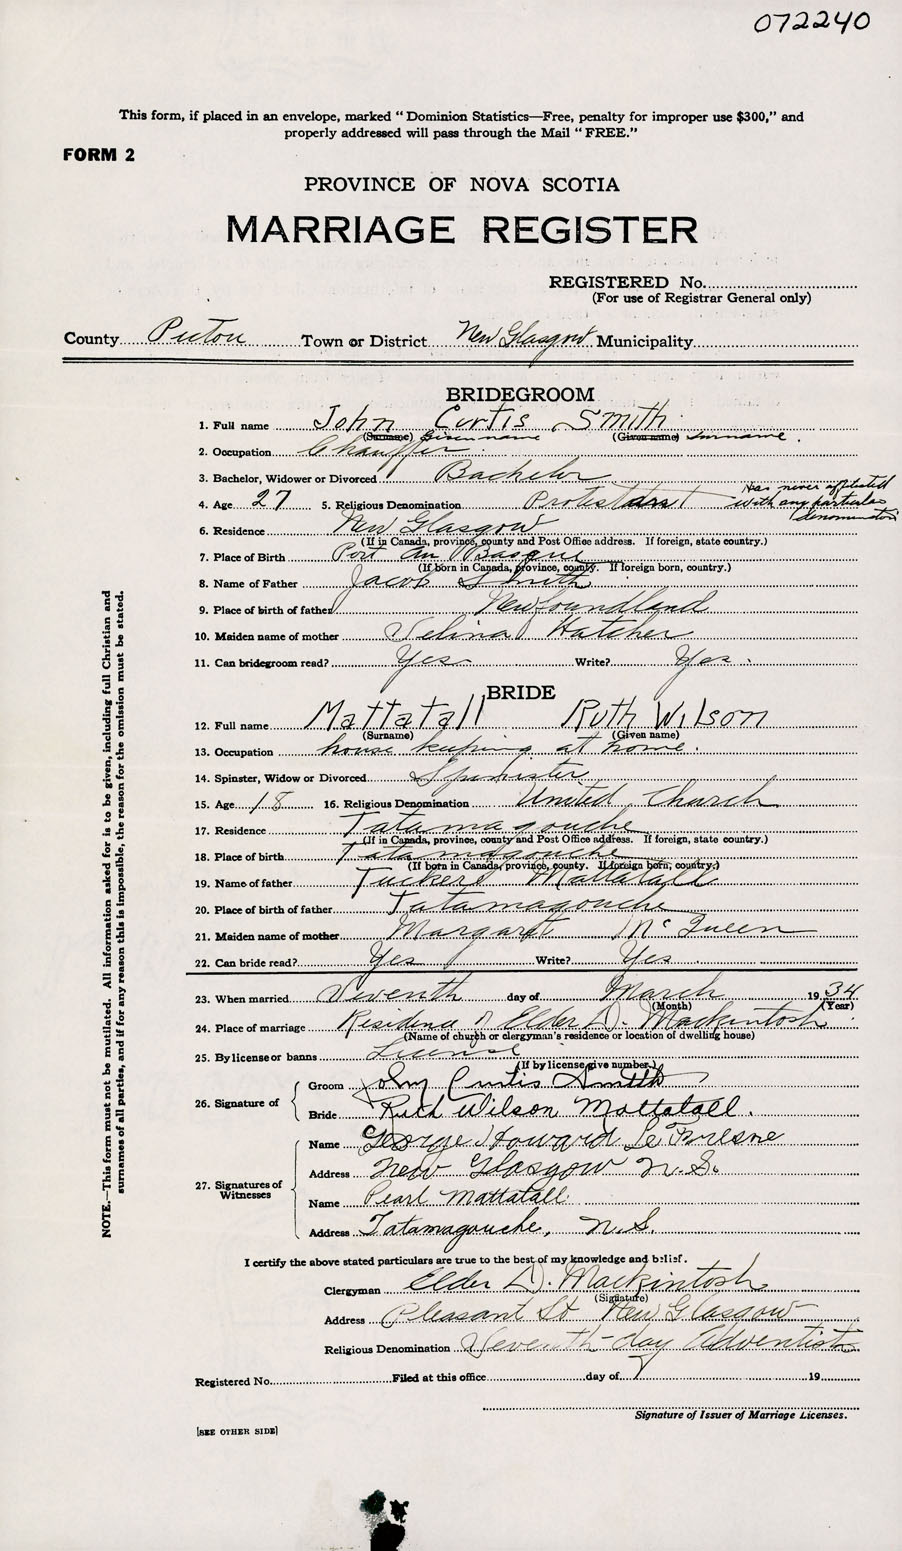 072240
This form, if placed in an envelope, marked " Dominion Statistics—Free, penalty for improper use $300," and
properly addressed will pass through the Mail " FREE."
FORM 2
PROVINCE OF NOVA SCOTIA
MARRIAGE REGISTER
REGISTERED No.
(For use of Registrar General only)
County Pictou Town or District New Glasgow Municipality
BRIDEGROOM
1. Full name John Curtis Smith
(Surname) Given name (Given name) surname.
2. Occupation Chauffer.
3. Bachelor, Widower or Divorced Bachelor
4. Age 27 5. Religious Denomination Protestant Has never affiliated
with any particular
denomination
6. Residence New Glasgow
(If in Canada, province, county and Post Office address. If foreign, state country.)
7. Place of Birth Port au Basque
(If born in Canada, province, county. If foreign born, country.)
8. Name of Father Jacob Smith
9. Place of birth of father Newfoundland
10. Maiden name of mother Selina Hatcher
11. Can bridegroom read? Yes Write? Yes.
BRIDE
12. Full name Mattatall Ruth Wilson
(Surname) (Given name)
13. Occupation house keeping at home.
14. Spinster, Widow or Divorced Spinister
15. Age 18 16. Religious Denomination United Church
17. Residence Tatamagouche
(If in Canada, province, county and Post Office address. If foreign, state country.)
18. Place of birth Tatamagouche
(If born in Canada, province, county. If foreign born, country.)
19. Name of father Tuckers Mattatall
20. Place of birth of father Tatamagouche
21. Maiden name of mother Margaret McQueen
22. Can bride read? Yes Write? Yes
23. When married Seventh day of March 1934
(Month) (Year)
24. Place of marriage Residence of Elder D. Mackintosh
(Name of church or clergyman's residence or location of dwelling house)
25. By license or banns License
(If by license give number.)
26. Signature of Groom John Curtis Smith
Bride Ruth Wilson Mattatall.
27. Signatures of Witnesses
Name George Howard Le Fresne
Address New Glasgow N.S.
Name Pearl Mattatall
Address Tatamagouche, N.S.
I certify the above stated particulars are true to the best of my knowledge and belief.
Clergyman Elder D. Mackintosh
(Signature)
Address Pleasant St New Glasgow
Religious Denomination Seventh-day Adventist
Registered No. Filed at this office day of 19
Signature of Issuer of Marriage Licenses.
[SEE OTHER SIDE]
NOTE.—This form must not be mutilated. All information asked for is to be given, including full Christian and
surnames of all parties, and if for any reason this is impossible, the reason for the omission must be stated.